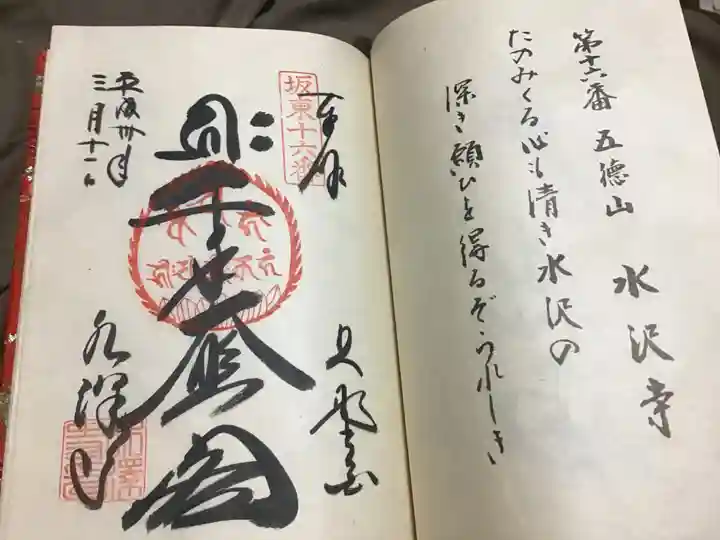 第十六番 五徳山 水沢寺
たのみくる心も清き水沢の
深き願ひを得るぞうれしき
坂東十六番
奉拝
千手大悲閣
五徳山
水澤寺
平成卅年
三月十一日